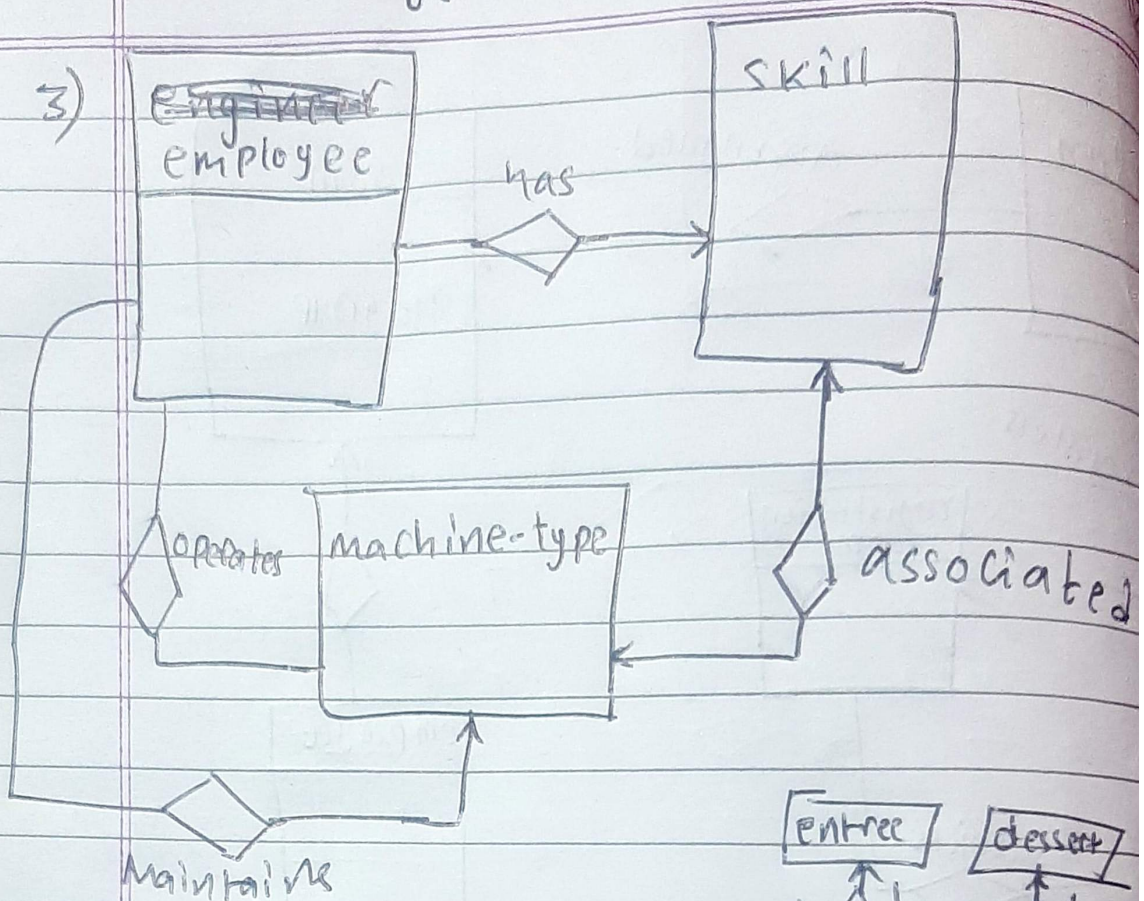 3)
employee
skill
has
operates
machine-type
associated
Maintains
entree
dessert